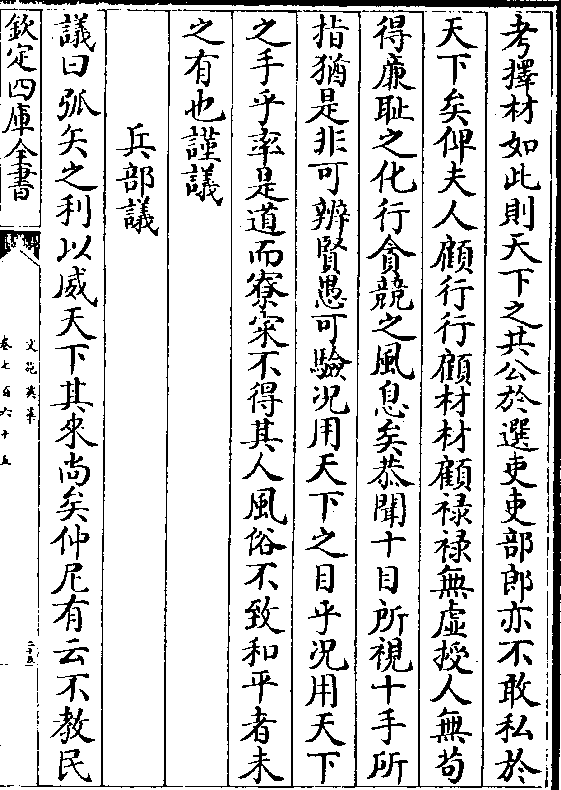 考擇材如此則天下之共公於選吏吏部郎亦不敢私於
天下矣俾夫人顧行行顧材材顧禄禄無虚授人無苟
得廉耻之化行貪競之風息矣恭聞十目所視十手所
指猶是非可辨賢愚可驗况用天下之目乎况用天下
之手乎率是道而寮寀不得其人風俗不致和平者未
之有也謹議
兵部議
議曰弧矢之利以威天下其來尚矣仲尼有云不教民
欽定四庫全書
文苑英華
卷七百六十五